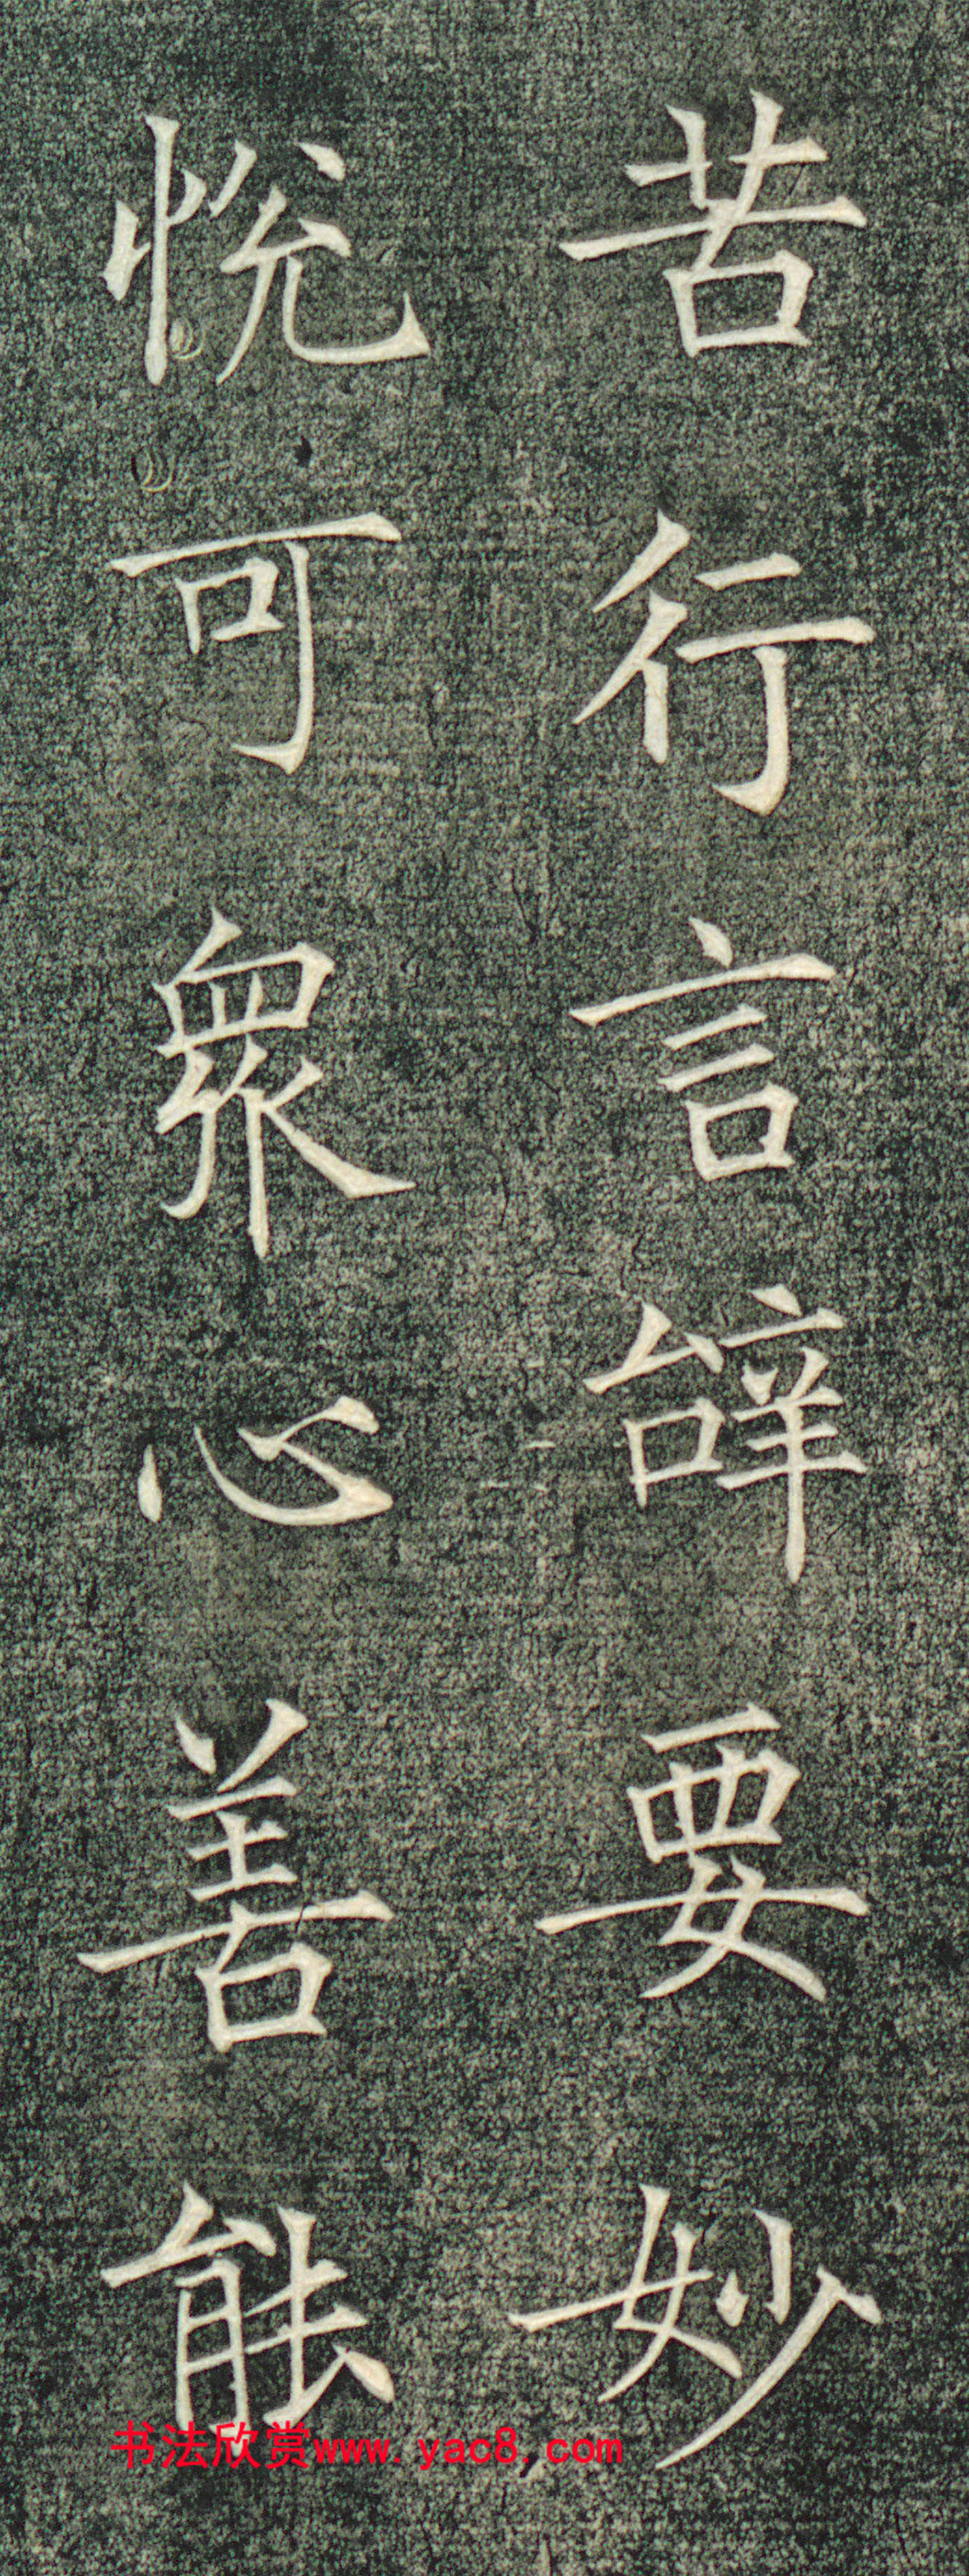 苦行言辝要妙
悅可眾心善能
书法欣赏www.yac8.com